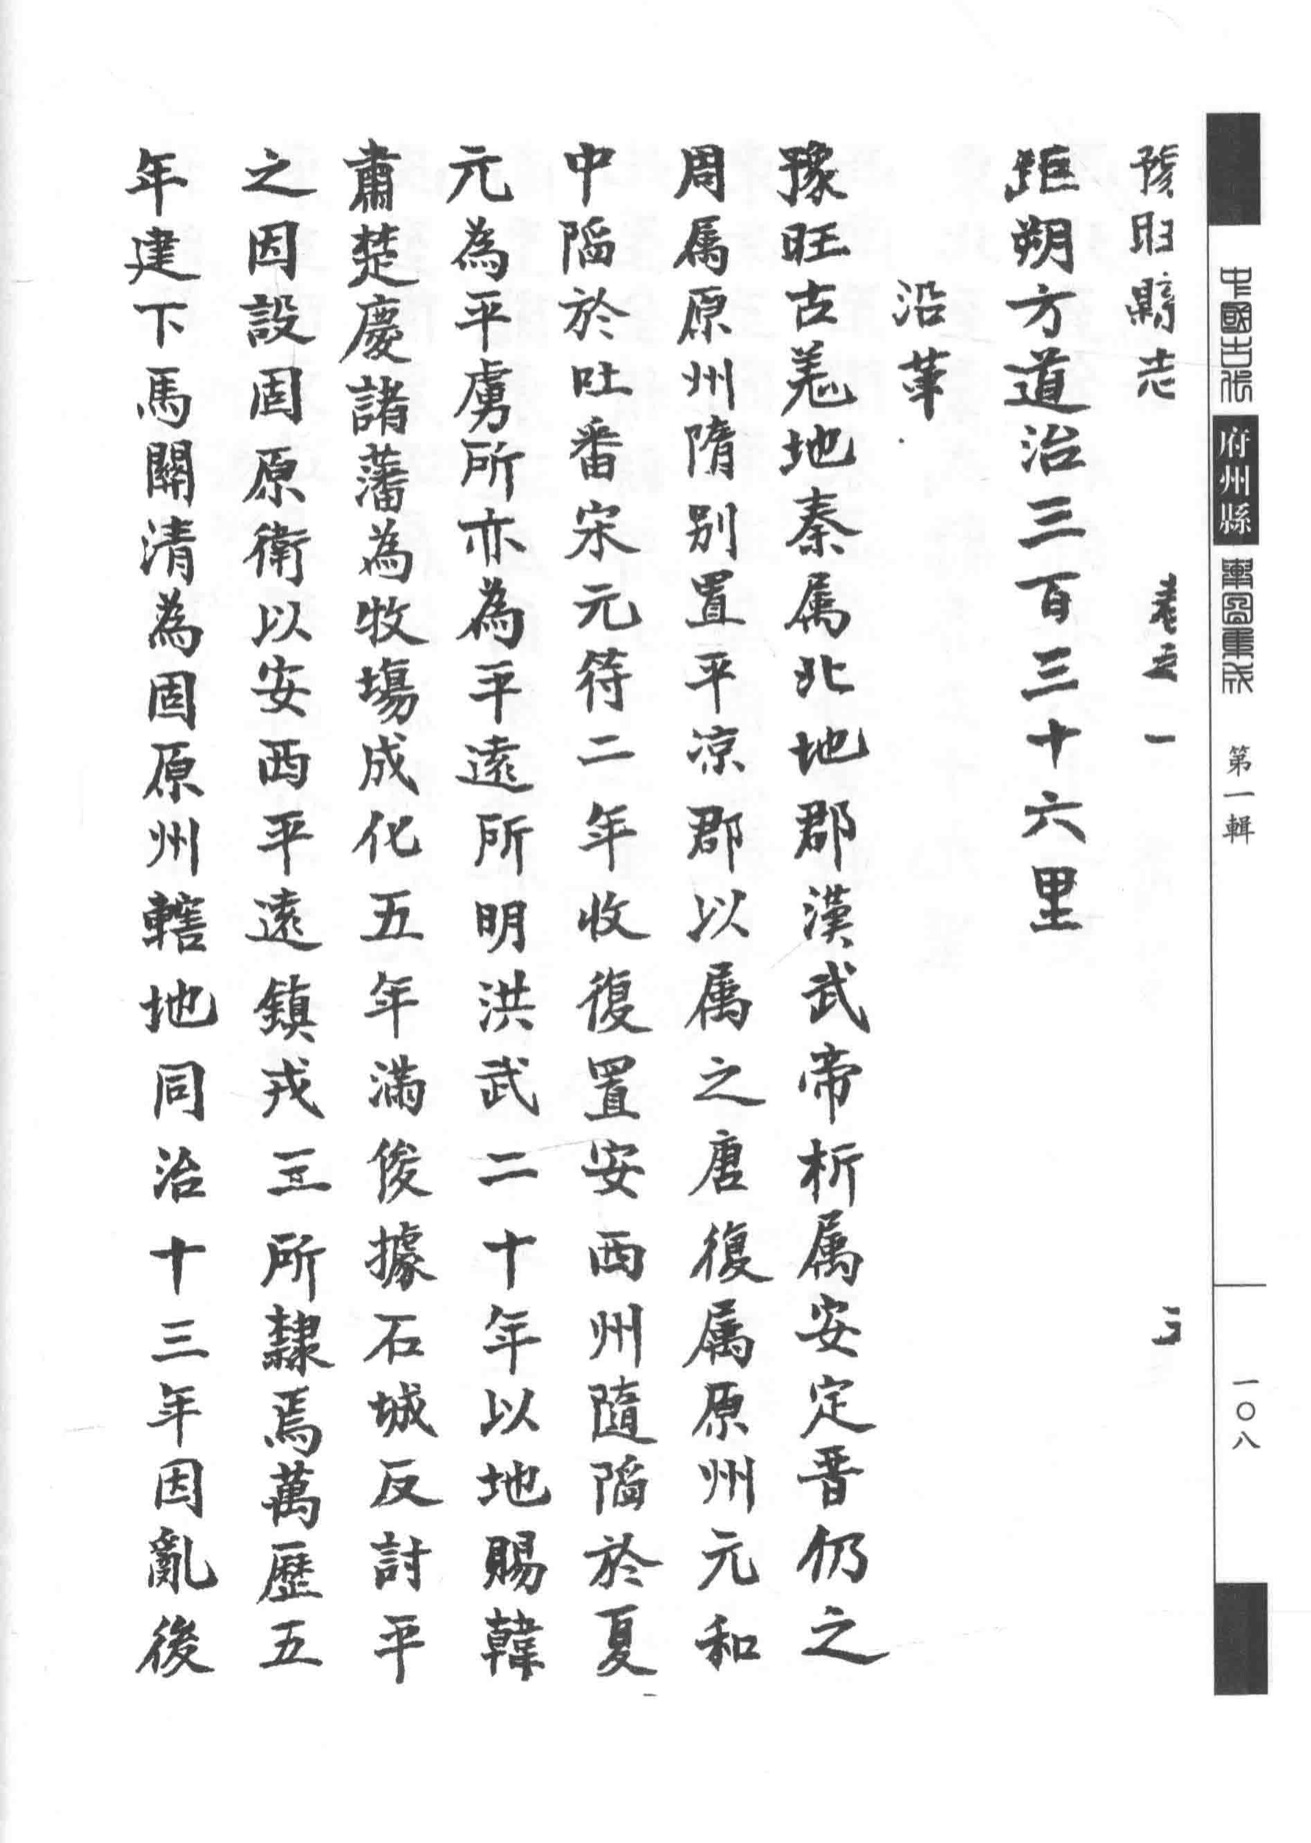 中國古代
府州縣
輿圖集成
第一輯
一〇八
豫旺縣志 卷之一 三
距朔方道治三百三十六里
沿革
豫旺古羗地秦属北地郡漢武帝析属安定晋仍之
周属原州隋别置平凉郡以属之唐復属原州元和
中陷於吐番宋元符二年收復置安西州隨陷於夏
元為平虜所亦為平遠所明洪武二十年以地賜韓
肅楚慶諸藩為牧塲成化五年滿俊據石城反討平
之因設固原衛以安西平遠鎮戎三所隸焉萬歷五
年建下馬關清為固原州轄地同治十三年因亂後